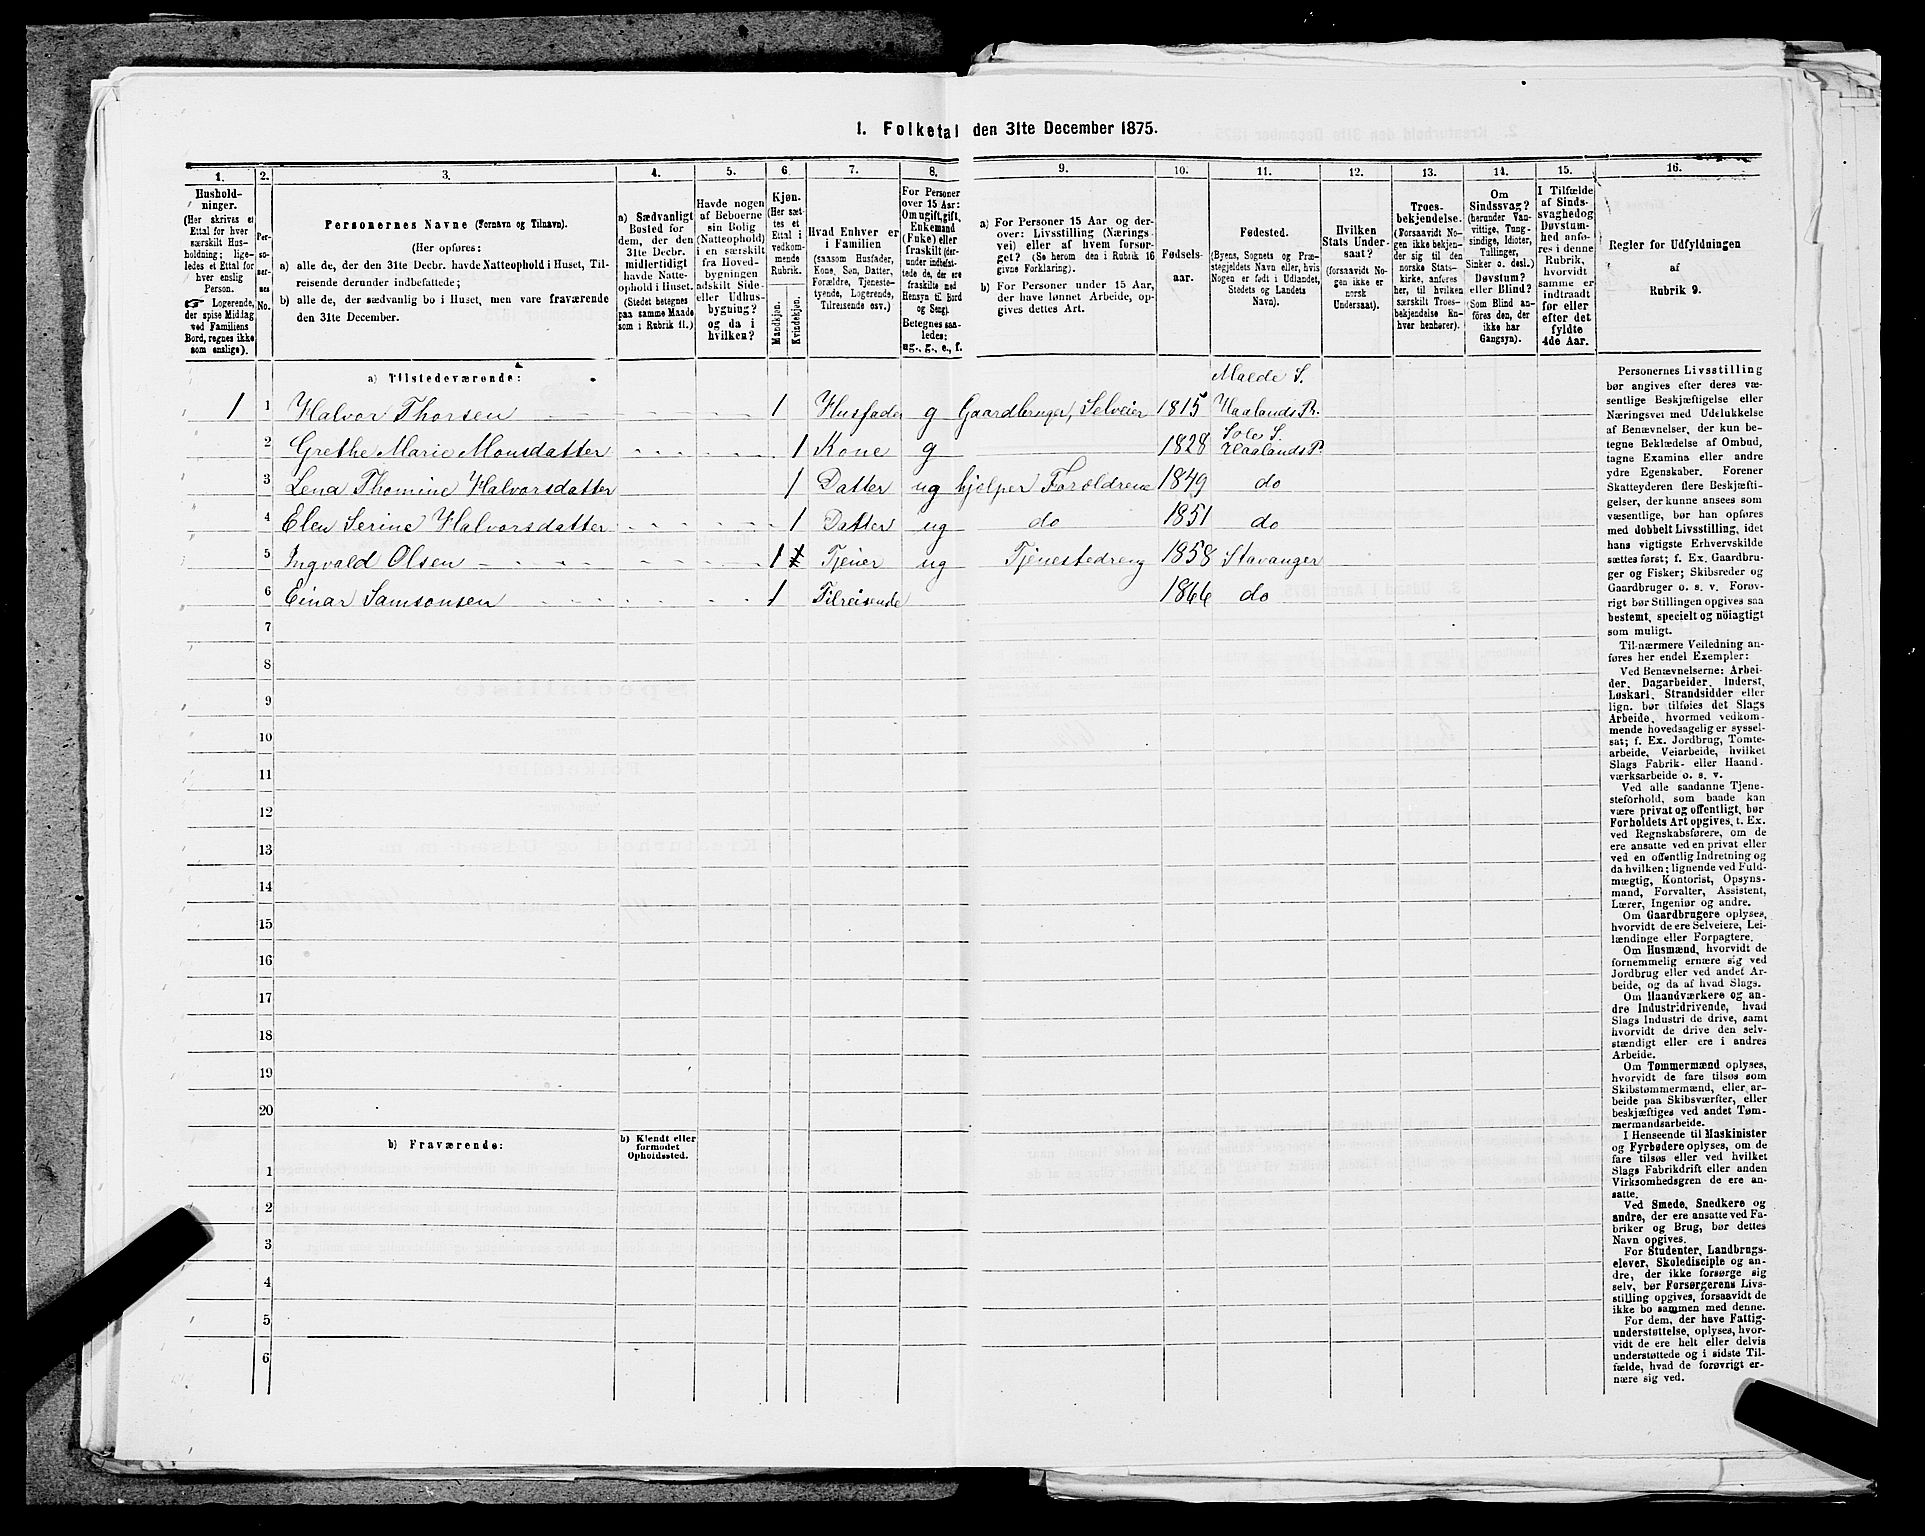 1. Folketal den 31te December 1875.
1. 2. 3. 4. 5. 6. 7. 8. 9. 10. 11. 12. 13. 14. 15. 16.
Hushold-
ninger.
(Her skrives et
Ettal for hver
særskilt Hus-
holdning; lige-
ledes et Ettal for
hver enslig
Person.
☞ Logerende,
der spise Middag
ved Familiens
Bord, regnes ikke
som enslige).
Per-
so-
ner-
nes
No.
Personernes Navne (Fornavn og Tilnavn).
(Her opføres:
a) alle de, der den 31te Decbr. havde Natteophold i Huset, Til-
reisende derunder indbefattede;
b) alle de, der sædvanlig bo i Huset, men vare fraværende
den 31te December.
a) Sædvanligt
Bosted for
dem, der den
31te Decbr.
midlertidigt
havde Natte-
ophold i Huset.
(Stedet betegnes
paa samme Maade
som i Rubrik 11.)
Havde nogen
af Beboerne
sin Bolig
(Natteophold)
i en særskilt
fra Hoved-
bygningen
adskilt Side-
eller Udhus-
bygning?
og da i
hvilken?
Kjøn.
(Her sæt-
tes et
Ettal i
vedkom-
mende
Rubrik.
Mandkjøn.
Kvindekjøn.
Hvad Enhver er
i Familien
(saasom Husfader,
Kone, Søn, Datter,
Forældre, Tjeneste-
tyende, Logerende,
Tilreisende osv.)
For Personer
over 15 Aar:
Om ugift, gift,
Enkemand
(Enke) eller
fraskilt (der-
under indbefat-
tede de, der ere
fraskilte med
Hensyn til Bord
og Seng).
Betegnes saa-
ledes:
ug., g., e., f.
a) For Personer 15 Aar og der-
over: Livsstilling (Nærings-
vei) eller af hvem forsør-
get? (Se herom den i Rubrik 16
givne Forklaring).
b) For Personer under 15 Aar,
der have lønnet Arbeide, op-
gives dettes Art.
Fødsels-
aar.
Fødested.
(Byens, Sognets og Præ-
stegjeldets Navn eller, hvis
Nogen er født i Udlandet,
Stedets og Landets
Navn).
Hvilken
Stats Under-
saat?
(forsaavidt No-
gen ikke er
norsk
Undersaat).
Troes-
bekjendelse.
(Forsaavidt No-
gen ikke bekjen-
der sig til den
norske Stats-
kirke, anføres
her, til hvilken
særskilt Troes-
bekjendelse En-
hver henhører).
Om
Sindssvag?
(herunder Van-
vittige, Tung-
sindige, Idioter,
Tullinger,
Sinker o. desl.)
Døvstum?
eller Blind?
(Som Blind an-
føres den, der
ikke har
Gangsyn).
I Tilfælde
af Sinds-
svaghed og
Døvstum-
hed anfø-
res i denne
Rubrik,
hvorvidt
samme er
indtraadt
før eller
efter det
fyldte
4de Aar.
Regler for Udfyldningen
af
Rubrik 9.
a) Tilstedeværende:
Malde S.
1 1 Halvor Thorsen 1 Husfader g Gaardbruger, Selveier 1815 Haalands Pr.
Sole S.
2 Grethe Marie Monsdatter 1 Kone g 1828 Haalands P.
3 Lena Thomine Halvorsdatter 1 Datter ug hjelper Forældrene 1849 do
4 Elen Serine Halvorsdatter 1 Datter ug do 1851 do
5 Ingvald Olsen 1 1 Tjener ug Tjenestedreng 1858 Stavanger
6 Einar Samsonsen 1 Tilreisende 1866 do
7
8
9
10
11
12
13
14
15
16
17
18
19
20
b) Fraværende:
b) Kjendt eller
formodet
Opholdssted.
1
2
3
4
5
6
Personernes Livsstilling
bør angives efter deres væ-
sentlige Beskjæftigelse eller
Næringsvei med Udelukkelse
af Benævnelser, der kun be-
tegne Beklædelse af Ombud,
tagne Examina eller andre
ydre Egenskaber. Forener
Skatteyderen flere Beskjæfti-
gelser, der kunne ansees som
væsentlige, bør han opføres
med dobbelt Livsstilling, idet
hans vigtigste Erhvervskilde
sættes først; f. Ex. Gaardbru-
ger og Fisker; Skibsreder og
Gaardbruger o. s. v. Forøv-
rigt bør Stillingen opgives saa
bestemt, specielt og nøiagtigt
som muligt.
Til nærmere Veiledning an-
føres her endel Exempler:
Ved Benævnelserne: Arbei-
der, Dagarbeider, Inderst,
Løskarl, Strandsidder eller
lign. bør tilføies det Slags
Arbeide, hvormed vedkom-
mende hovedsagelig er syssel-
sat; f. Ex. Jordbrug, Tomte-
arbeide, Veiarbeide, hvilket
Slags Fabrik- eller Haand-
værksarbeide o. s. v.
Ved alle saadanne Tjene-
steforhold, som baade kan
være privat og offentligt, bør
Forholdets Art opgives, t. Ex.
ved Regnskabsførere, om de
ere ansatte ved en privat eller
ved en offentlig Indretning og
da hvilken; lignende ved Fuld-
mægtig, Kontorist, Opsyns-
mand, Forvalter, Assistent,
Lærer, Ingeniør og andre.
Om Gaardbrugere oplyses,
hvorvidt de ere Selveiere, Lei-
lændinge eller Forpagtere.
Om Husmænd, hvorvidt de
fornemmelig ernære sig ved
Jordbrug eller ved andet Ar-
beide, og da af hvad Slags.
Om Haandværkere og an-
dre Industridrivende, hvad
Slags Industri de drive, samt
hvorvidt de drive den selv-
stændigt eller ere i andres
Arbeide.
Om Tømmermænd oplyses,
hvorvidt de fare tilsøs som
Skibstømmermænd, eller ar-
beide paa Skibsværfter, eller
beskjæftiges ved andet Tøm-
mermandsarbeide.
I Henseende til Maskinister
og Fyrbødere oplyses, om de
fare tilsøs eller ved hvilket
Slags Fabrikdrift eller anden
Virksomhedsgren de ere an-
satte.
Ved Smede, Snedkere og
andre, der ere ansatte ved Fa-
briker og Brug, bør dettes
Navn opgives.
For Studenter, Landbrugs-
elever, Skoledisciple og an-
dre, der ikke forsørge sig
selv, bør Forsørgerens Livs-
stilling opgives, forsaavidt de
ikke bo sammen med denne.
For dem, der have Fattig-
understøttelse, oplyses, hvor-
vidt de ere helt eller delvis
understøttede og i sidste Til-
fælde, hvad de forøvrigt er-
nære sig ved.